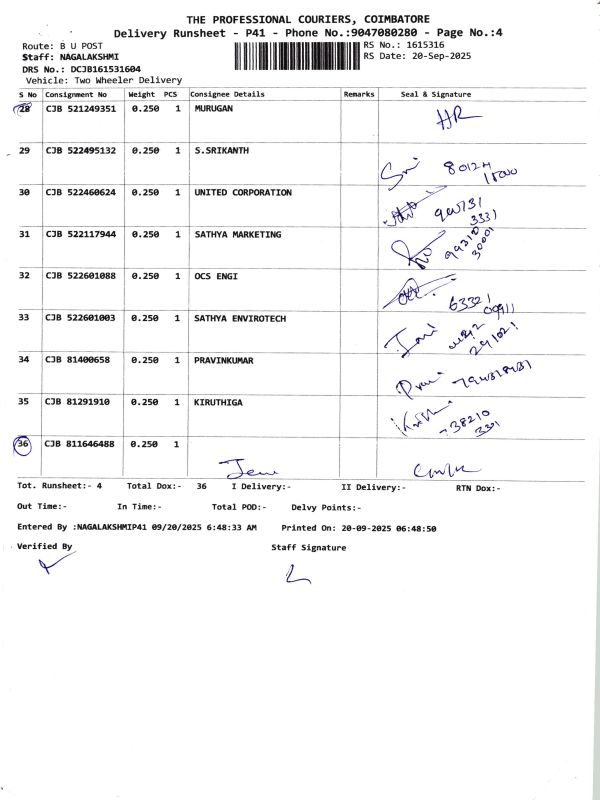 THE PROFESSIONAL COURIERS, COIMBATORE
Delivery Runsheet - P41 - Phone No.:9047080280 - Page No.:4
Route: B U POST
RS No.: 1615316
Staff: NAGALAKSHMI
RS Date: 20-Sep-2025
DRS No.: DCJB161531604
Vehicle: Two Wheeler Delivery
S No Consignment No Weight PCS Consignee Details Remarks Seal & Signature
28 CJB 521249351 0.250 1 MURUGAN HR
29 CJB 522495132 0.250 1 S.SRIKANTH
30 CJB 522460624 0.250 1 UNITED CORPORATION
31 CJB 522117944 0.250 1 SATHYA MARKETING
32 CJB 522601088 0.250 1 OCS ENGI
33 CJB 522601003 0.250 1 SATHYA ENVIROTECH
34 CJB 81400658 0.250 1 PRAVINKUMAR
35 CJB 81291910 0.250 1 KIRUTHIGA
36 CJB 811646488 0.250 1
Tot. Runsheet:- 4 Total Dox:- 36 I Delivery:- II Delivery:- RTN Dox:-
Out Time:- In Time:- Total POD:- Delvy Points:-
Entered By :NAGALAKSHMIP41 09/20/2025 6:48:33 AM Printed On: 20-09-2025 06:48:50
Verified By Staff Signature